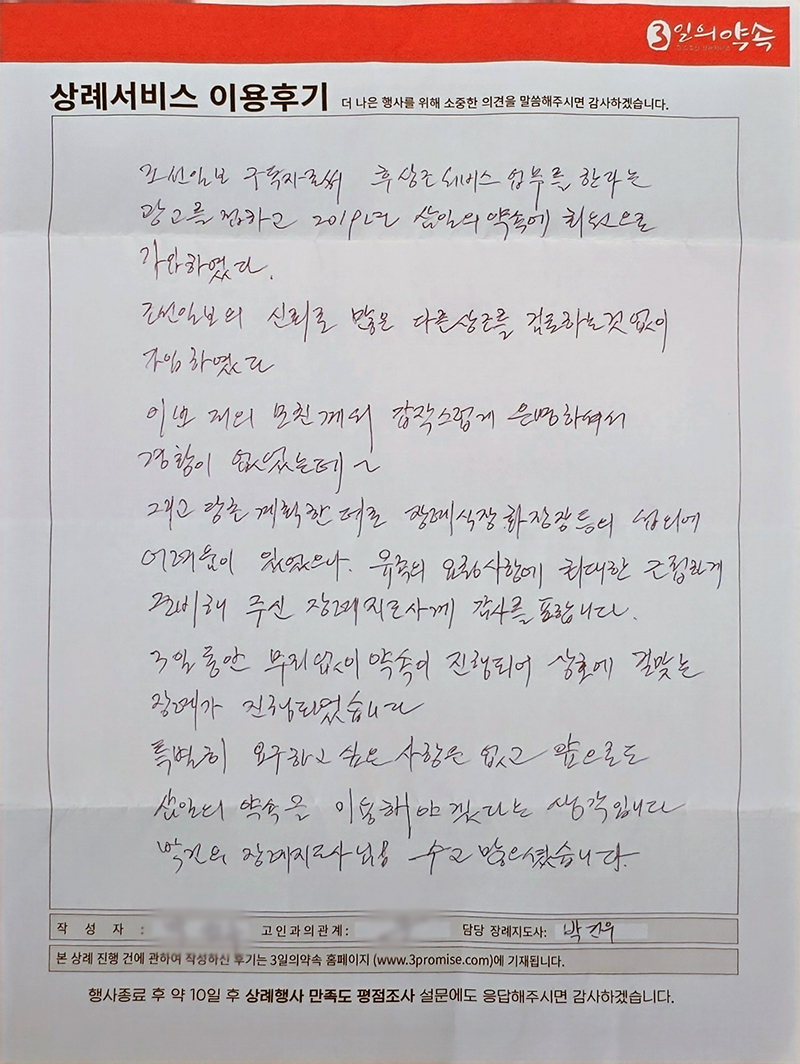 3일의약속
상례서비스 이용후기 더 나은 행사를 위해 소중한 의견을 말씀해주시면 감사하겠습니다.
조선일보 구독자로써 후상조 서비스 업무를 한라는
광고를 접하고 2019년 삼일의 약속에 회원으로
가입하였다.
조선일보의 신뢰로 많은 다른상조를 검토하는것 없이
가입하였다
이번 저의 모친께서 갑작스럽게 운명하여서
경황이 없었는데~
그리고 당초 계획한데로 장례식장.화장장등의 섭외에
어려움이 있었으나. 유족의 요청사항에 최대한 근접하게
준비해 주신 장례지도사께 감사를 표합니다.
3일동안 무리없이 약속이 진행되어 상호에 걸맞는
장례가 진행되었습니다
특별히 요구하고 싶은 사항은 없고 앞으로도
삼일의 약속을 이용해야 겠다는 생각입니다
장례지도사님 수고 많으셨습니다.
작 성 자 : 고인과의관계 : 담당 장례지도사:
본 상례 진행 건에 관하여 작성하신 후기는 3일의약속 홈페이지 (www.3promise.com)에 기재됩니다.
행사종료 후 약 10일 후 상례행사 만족도 평점조사 설문에도 응답해주시면 감사하겠습니다.